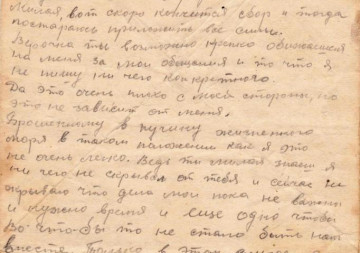 Милая, вот скоро кончится сбор и тогда
постараюсь приложить все силы.
Верочка ты возможно крепко обижаешся
на меня за мои обещания и то что я
не пишу ни чего конкретного.
Да это очень плохо с моей стороны, но
это не зависит от меня.
Брошенному в пучину жизненного
моря в таком положении как я это
не очень легко. Ведь ты милая знаеш я
ни чего не скрывал от тебя и сейчас не
скрываю что дела мои пока не важны
и нужно время и еще одно чтобы
во что-бы то не стало быть нам
вместе. Только в этом